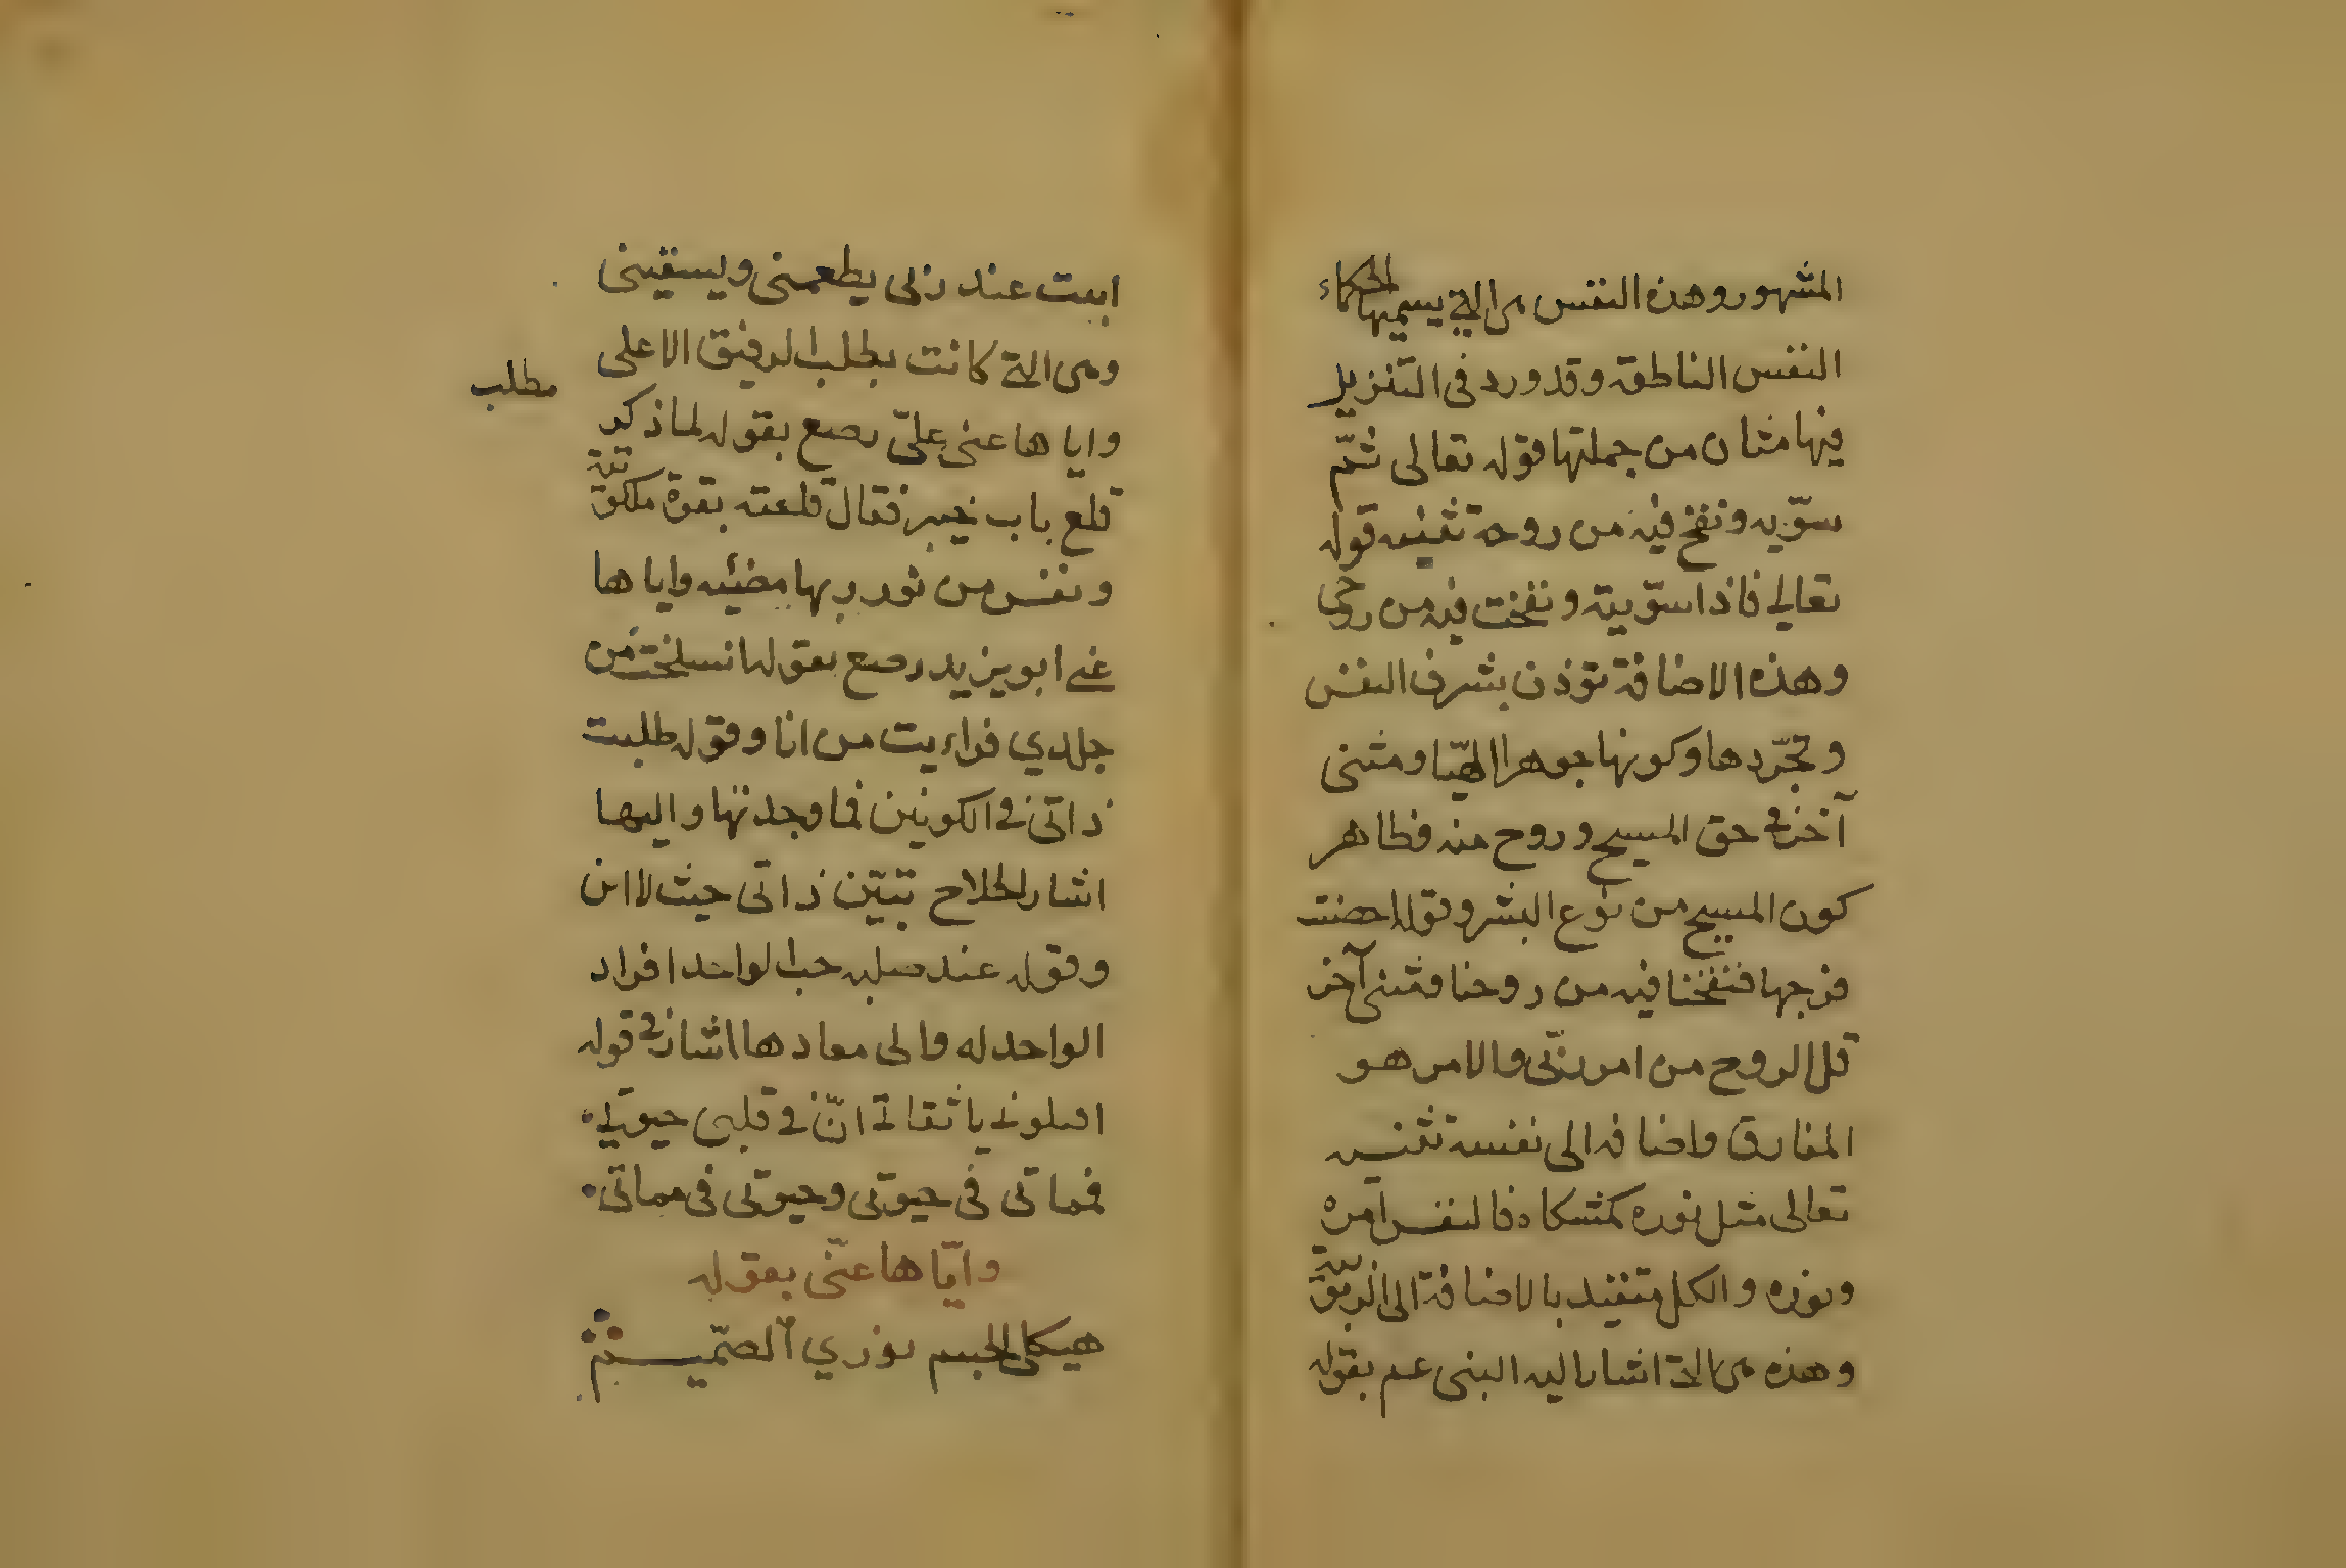 المشهور وهذه النفس هى التى يسميها الحكماء
النفس الناطقه وقد ورد فى التنزيل
فيها مثان من جملتها قوله تعالى ثمّ
سوّيه ونفخ فيه من روحه تثنيه قوله
تعالى فاذا سوّيته ونفخت فيه من روحى
وهذه الاضافة تؤذن بشرف النفس
وتجرّدها وكونها جوهرا الهيّا ومثنى
آخر فى حق المسيح وروح منه فظاهر
كون المسيح من نوع البشر وقوله احصنت
فرجها فنفخنا فيه من روحنا ومثنى آخر
قل الروح من امر ربّى والامر هو
المفارق واضافه الى نفسه تثنيه
تعالى مثل نوره كمشكاه فالنفس امره
ونوره والكل متقيد بالاضافة الى الربوبية
وهذه هى التى اشار اليه النبى عم بقوله
ابيت عند ربى يطعمنى ويسقينى
وهى التى كانت يطلب الرفيق الاعلى
مطلب
واياها عنى علىّ رصع بقوله لما ذكر
قلع باب خيبر فقال قلعته بقوة ملكوتية
ونفس من نور ربها مضئيه واياها
عنى ابو يزيد رصع بقوله انسلخت من
جلدي فراءيت من انا وقوله طلبت
ذاتى فى الكونين فما وجدتها واليها
اشار الحلاج تبيّن ذاتى حيث لا اين
وقوله عند صلبه حب الواحد افراد
الواحد له والى معادها اشار فى قوله
اقتلونى يا ثقاتى انّ فى قلبى حيوتى
فمماتى فى حيوتى وحيوتى فى مماتى
وايّاها عنّى بقوله
هيكلى الجسم نوري الصّميم